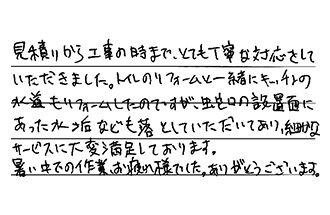 見積りから工事の時まで、とても丁寧な対応をして
いただきました。トイレのリフォームと一緒にキッチンの
水道もリフォームしたのですが、蛇口の設置面に
あった水汚なども落としていただいており、細かな
サービスに大変満足しております。
暑い中での作業、お疲れ様でした。ありがとうございます。